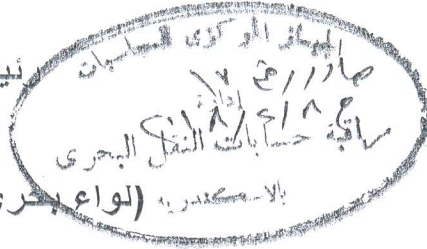 الجهاز المركزى للمحاسبات
صادر رقم ١٧
إدارة
مراقبة حسابات النقل البحرى
بالاسكندريه (لواء بحرى